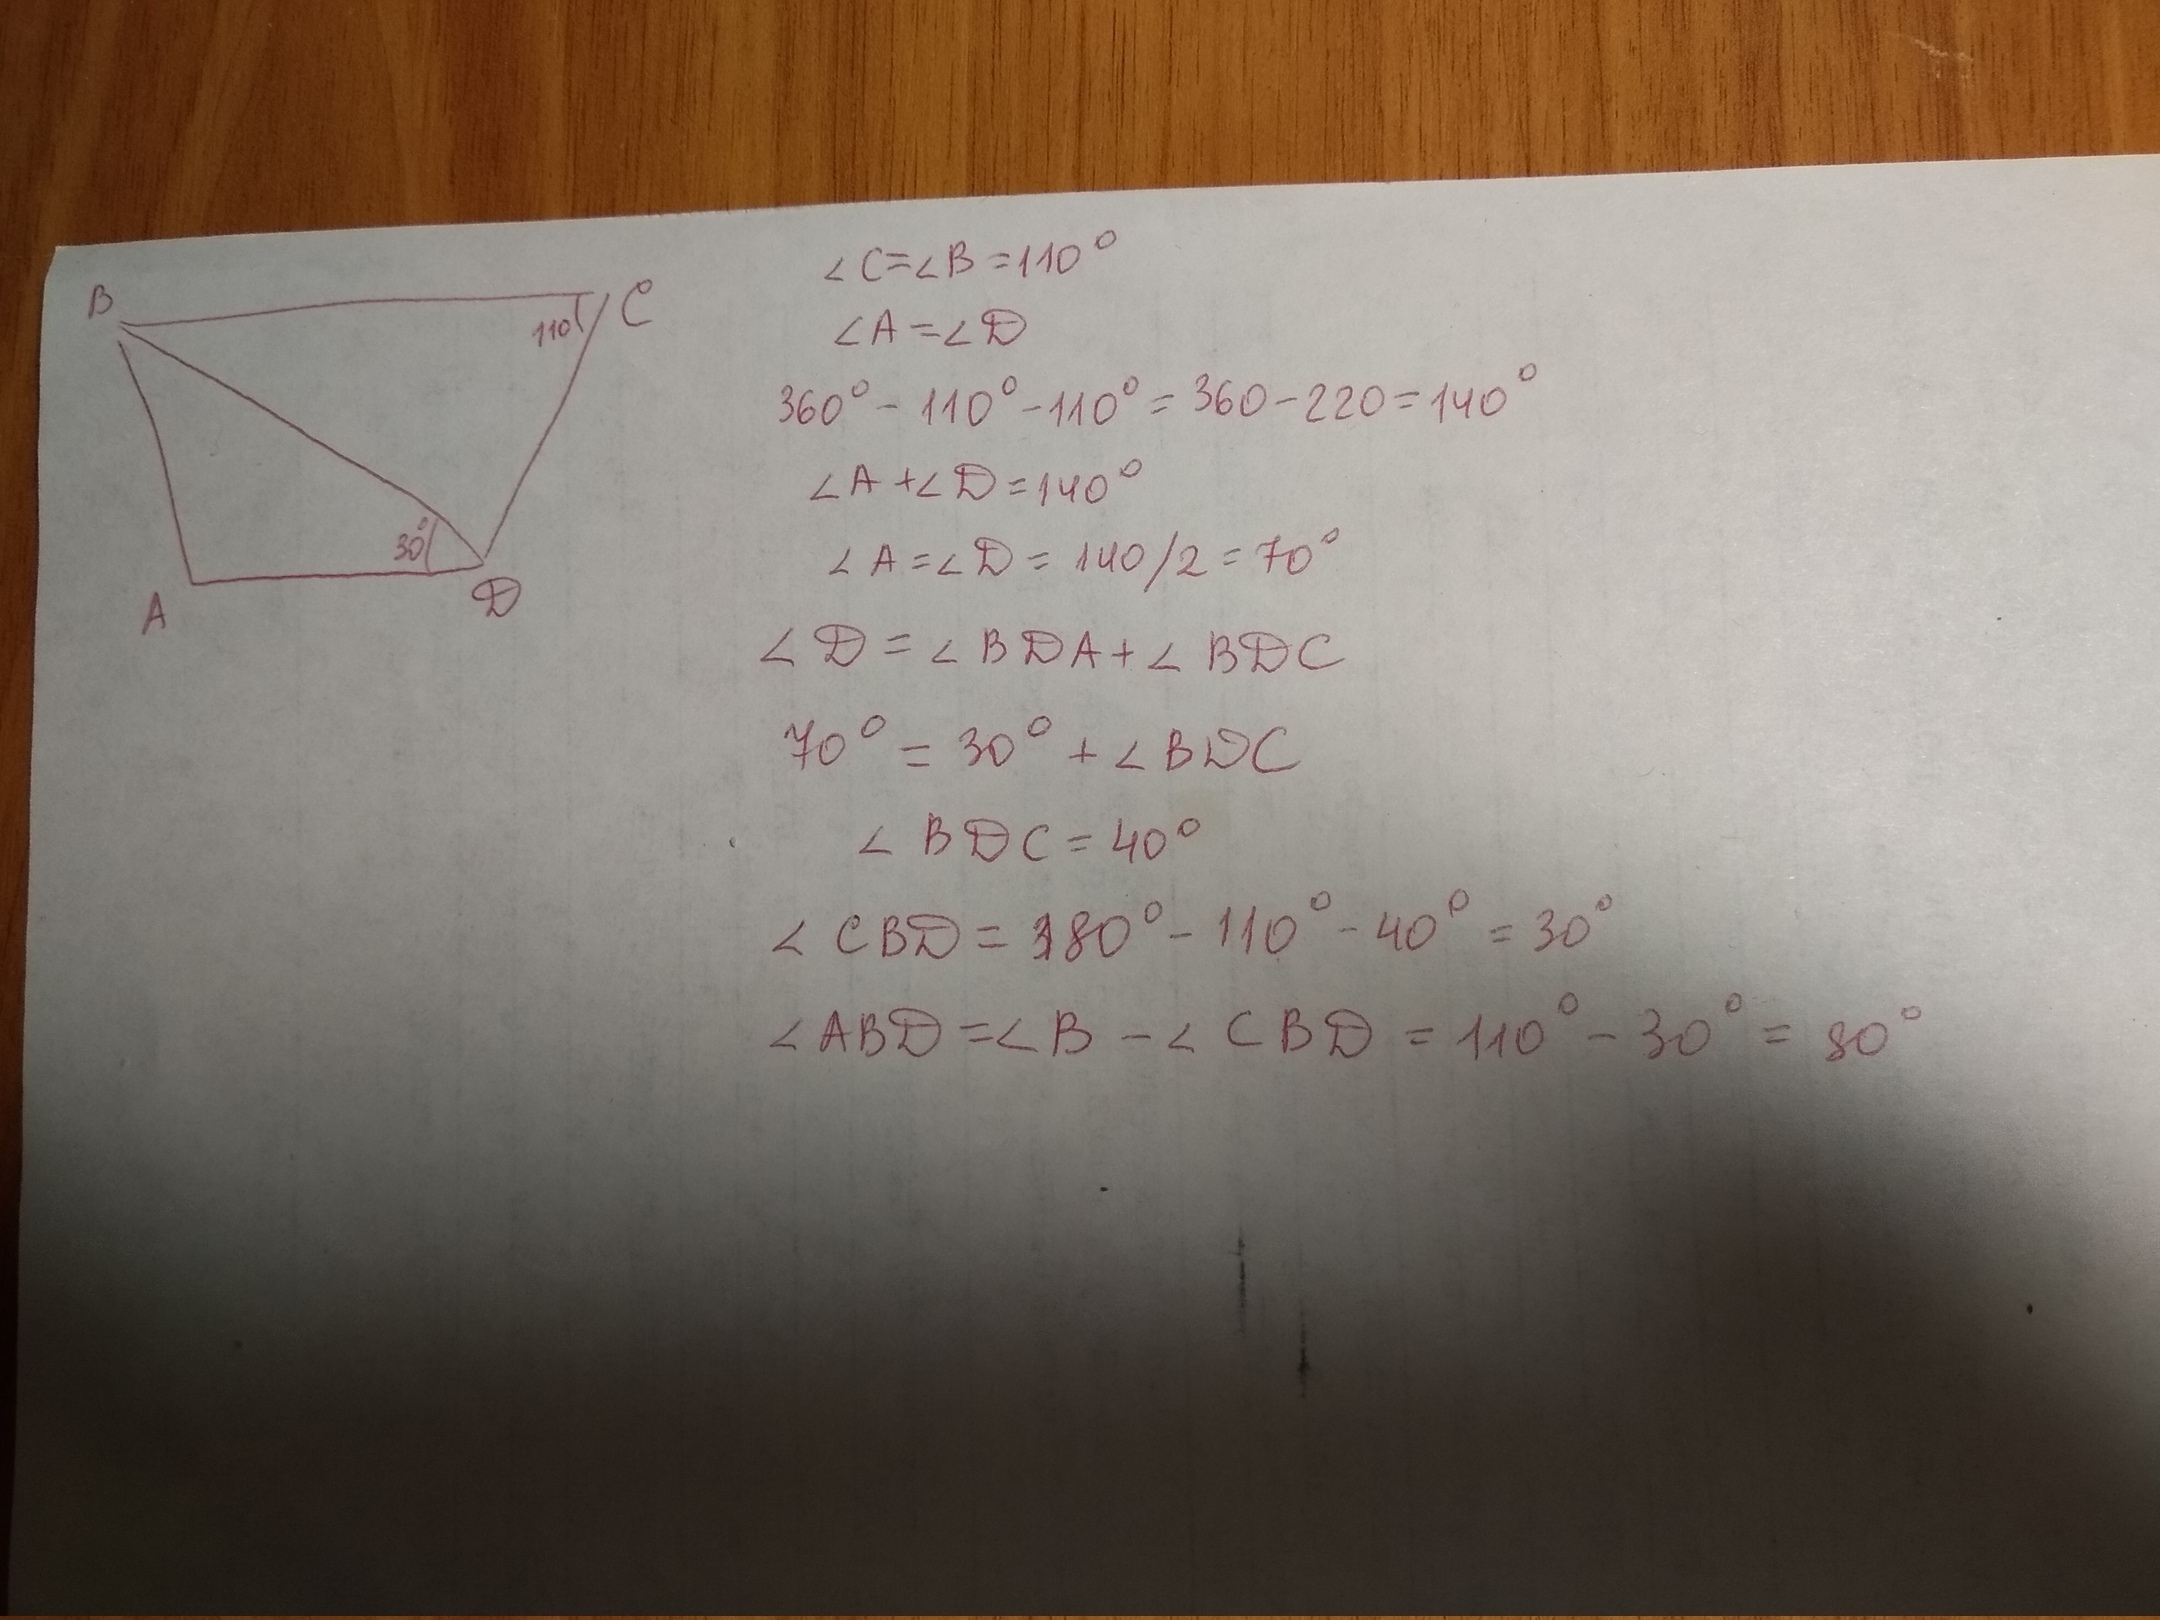 B
C
110
30°
A
D
∠C=∠B=110°
∠A=∠D
360°-110°-110°=360-220=140°
∠A+∠D=140°
∠A=∠D=140/2=70°
∠D=∠BDA+∠BDC
70°=30°+∠BDC
∠BDC=40°
∠CBD=180°-110°-40°=30°
∠ABD=∠B-∠CBD=110°-30°=80°